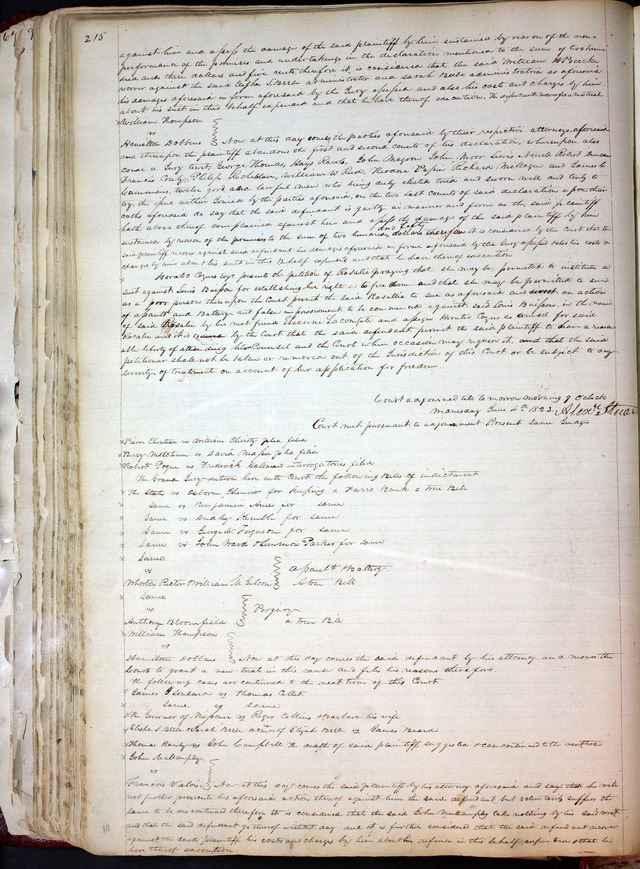 215
against him and assess the damage of the said plaintiff by him sustained by reason of the non
performance of the promises and undertakings in the declaration mentioned to the sum of
dred three dollars and five cents therefore it is considered that the said William H Pocock
recover against the said Elijah J Bebb administrator and Sarah Bebb administratrix as aforesaid
his damages aforesaid in form aforesaid by the Jury assessed and also his costs and charges by him
about his suit in this behalf expended and that he have thereof execution. The defendant moves for a new trial
William Thompson
vs
Hamilton Dobbins Now at this day comes the parties aforesaid by their respective attorneys aforesaid
and thereupon the plaintiff abandons the first and second counts of his declaration, whereupon also
came a Jury to wit, George Thomas, Hays John Magon John Moor Lewis Newell Robert Duncan
Francis Philip Rocheblave William W Reed Richard Milligan and James
Cummins, twelve good and lawful men who being duly elected tried and sworn well and truly to
try the issue within joined by the parties aforesaid, on the two last counts of said declaration upon their
oaths aforesaid do say that the said defendant is guilty in manner and form as the said plaintiff
hath above thereof complained against him and assess the damage of the said plaintiff by him
sustained by reason of the premises to the sum of two hundred and fifty dollars therefore it is considered by the Court that the
said plaintiff recover against said defendant his damages aforesaid in form aforesaid by the Jury assessed also his costs &
charges by him about his suit in this behalf expended and that he have thereof execution
Horatio Cozens esqr present the petition of Rosalie praying that she may be permitted to institute a
suit against Louis for establishing her right to freedom and that she may be permitted to sue
as a poor person whereupon the Court permit the said Rosalie to sue as aforesaid and direct an action
of assault and Battery and false imprisonment to be commenced against said Louis in the name
of said Rosalie by her next friend Etienne Lacompte and assign Horatio Cozens as counsel for said
Rosalie and it is ordered by the Court that the said defendant permit the said plaintiff to have a reason
able liberty of attending her Counsel and the Court when occasion may require it, and that the said
petitioner shall not be taken or removed out of the Jurisdiction of this Court or be subject to any
severity of treatment on account of her application for freedom.
Court adjourned till tomorrow morning 9 oclock
Wednesday June 4th 1823 Alexr Stuart
Court met pursuant to adjournment Present same Judge
Pierre Chouteau vs William Christy plea filed
Berry Mitchum vs David Massey plea filed
Robert Pogue vs Frederick interrogatories filed
The Grand Jury return here into Court the following Bills of indictment
The State vs Osborn for keeping a Farro Bank a true Bill
same vs Benjamin Ames for same
same vs Dudley for same
same vs George H Ferguson for same
same vs John Ward & Parker for same
Same
vs
Rector William St. Assault & Battery
A true Bill
same
vs
Anthony Bloomfield Perjury
a true Bill
William Thompson
vs
Hamilton Dobbins Now at this day comes the said defendant by his attorney and moves the
Court to grant a new trial in this cause and files his reasons therefore.
the following cases are continued to the next term of this Court
James G Soulard vs Thomas Collet
same vs same
The Governor of Missouri vs Roger Collins & Barbara his wife
Elisha J Bebb & Sarah Bebb admr of Elijah Bebb vs James Beard
Thomas Hanly vs John Campbell the death of said plaintiff suggested & case continued to the next term
John Mullanphy
vs
Francis Now at this day comes the said plaintiff by his attorney aforesaid and says that he will
not further prosecute his aforesaid action thereof against him the said defendant but voluntarily suffers the
same to be discontinued therefore it is considered that the said John Mullanphy take nothing by his said writ
and that the said defendant go thereof without day and it is further considered that the said defendant recover
against the said plaintiff his costs and charges by him about his defence in this behalf expended & that he
have thereof execution.